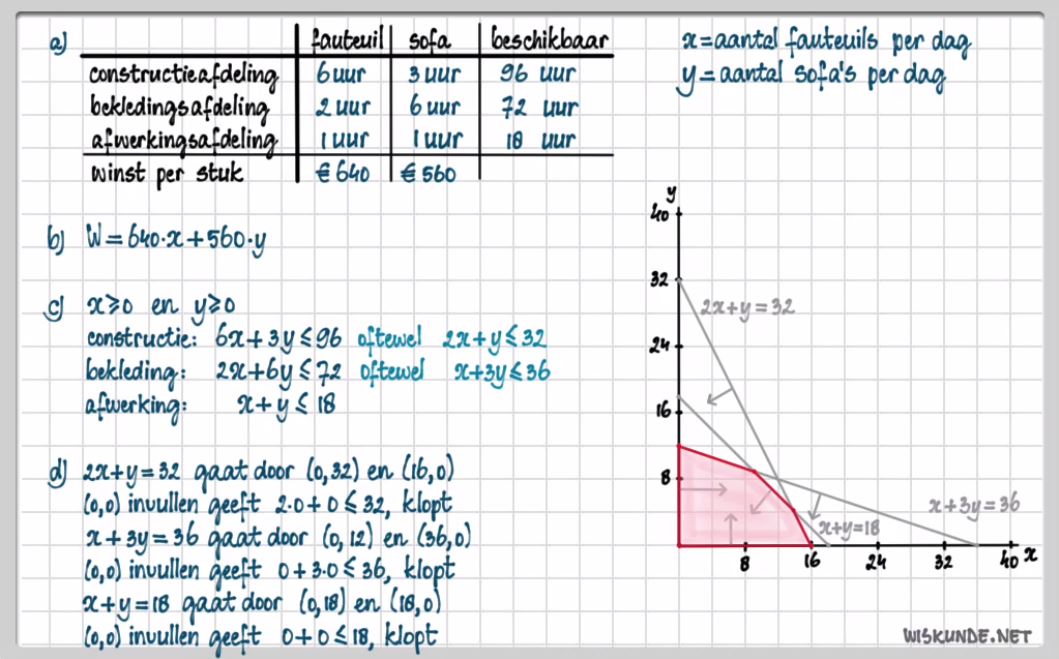 a) fauteuil sofa beschikbaar
constructieafdeling 6 uur 3 uur 96 uur
bekledingsafdeling 2 uur 6 uur 72 uur
afwerkingsafdeling 1 uur 1 uur 18 uur
winst per stuk €640 €560
x = aantal fauteuils per dag
y = aantal sofa's per dag
b) W = 640·x + 560·y
c) x ⩾ 0 en y ⩾ 0
constructie: 6x + 3y ⩽ 96 oftewel 2x + y ⩽ 32
bekleding: 2x + 6y ⩽ 72 oftewel x + 3y ⩽ 36
afwerking: x + y ⩽ 18
d) 2x + y = 32 gaat door (0,32) en (16,0)
(0,0) invullen geeft 2·0 + 0 ⩽ 32, klopt
x + 3y = 36 gaat door (0,12) en (36,0)
(0,0) invullen geeft 0 + 3·0 ⩽ 36, klopt
x + y = 18 gaat door (0,18) en (18,0)
(0,0) invullen geeft 0 + 0 ⩽ 18, klopt
y
40
32
2x + y = 32
24
16
8
x + 3y = 36
x + y = 18
8 16 24 32 40 x
WISKUNDE.NET